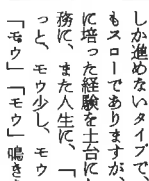 しか進めないタイプで、
もスローでありますが、
に培った経験を土台に
務に、また人生に、「
っと、モウ少し、モウ
「モウ」「モウ」鳴き